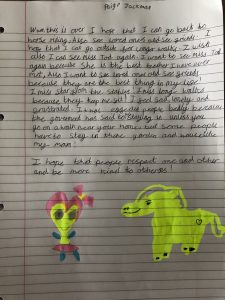 Paige Jackman
When this is over I hope that I can go back to
horse riding. Also see loved ones and see friends. I
hope that I can go outside for longer walks. I wish
also I can see Miss Tob again. I want to see miss
again because She is the best teacher I have ever
met. Also I want to see loved ones and see friends
because they are the best thing in my life!
I miss star from the stables. I miss longer walks
because they keep me fit. I feel sad, lonely and
frustrated. I miss people badly because
the goverment has said to stay in unless you
go on a walk near your home, but some people
have to stay in there garden and house like
my mam.
I hope that people respect one and other
and be more kind to others!